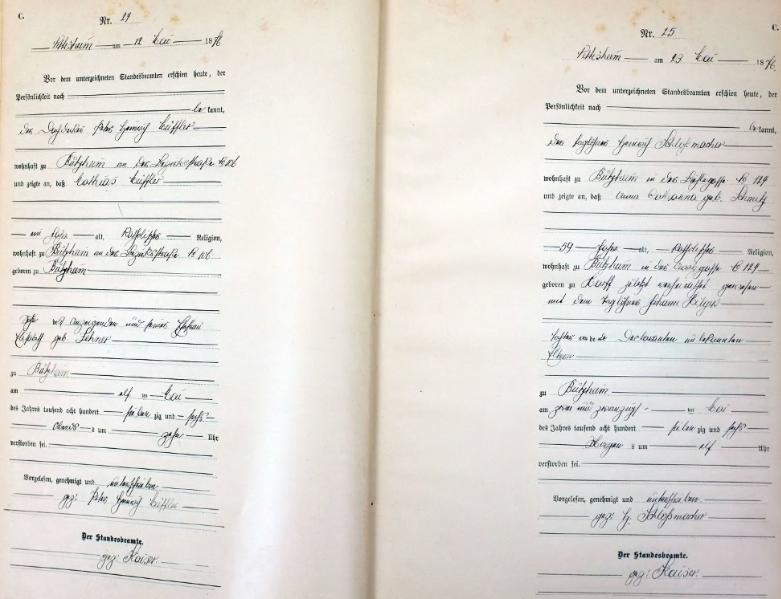 C.
Nr. 29
am 12 Mai 1876
Vor dem unterzeichneten Standesbeamten erschien heute, der
Persönlichkeit nach
be kannt,
der Peter Heinrich
wohnhaft zu Bützheim an der Bezirksstraße No 106
und zeigte an, daß Mathias
ein Jahr alt, katholischer Religion,
wohnhaft zu Bützheim an der Bezirksstraße No 106
geboren zu Bützheim
Sohn des Anzeigenden und seiner Ehefrau
geb.
zu Bützheim
am elf ten Mai
des Jahres tausend acht hundert sieben zig und sechs
abends s um zehn Uhr
verstorben sei.
Vorgelesen, genehmigt und unterschrieben
gez: Peter Heinrich
Der Standesbeamte.
gez: Kaiser.
C.
Nr. 25
am 23 Mai 1876
Vor dem unterzeichneten Standesbeamten erschien heute, der
Persönlichkeit nach
be kannt,
der Tagelöhner Heinrich Schloßmacher
wohnhaft zu Bützheim in der No 129
und zeigte an, daß Anna Catharina geb. Schmitz
59 Jahre alt, katholischer Religion,
wohnhaft zu Bützheim in der No 129
geboren zu zuletzt verheirathet gewesen
mit dem Tagelöhner Johann
Tochter von den Declaranten unbekannten
Eltern
zu Bützheim
am zwei und zwanzigsten Mai
des Jahres tausend acht hundert sieben zig und sechs
Morgen s um elf Uhr
verstorben sei.
Vorgelesen, genehmigt und unterschrieben
gez: H. Schloßmacher
Der Standesbeamte.
gez: Kaiser.